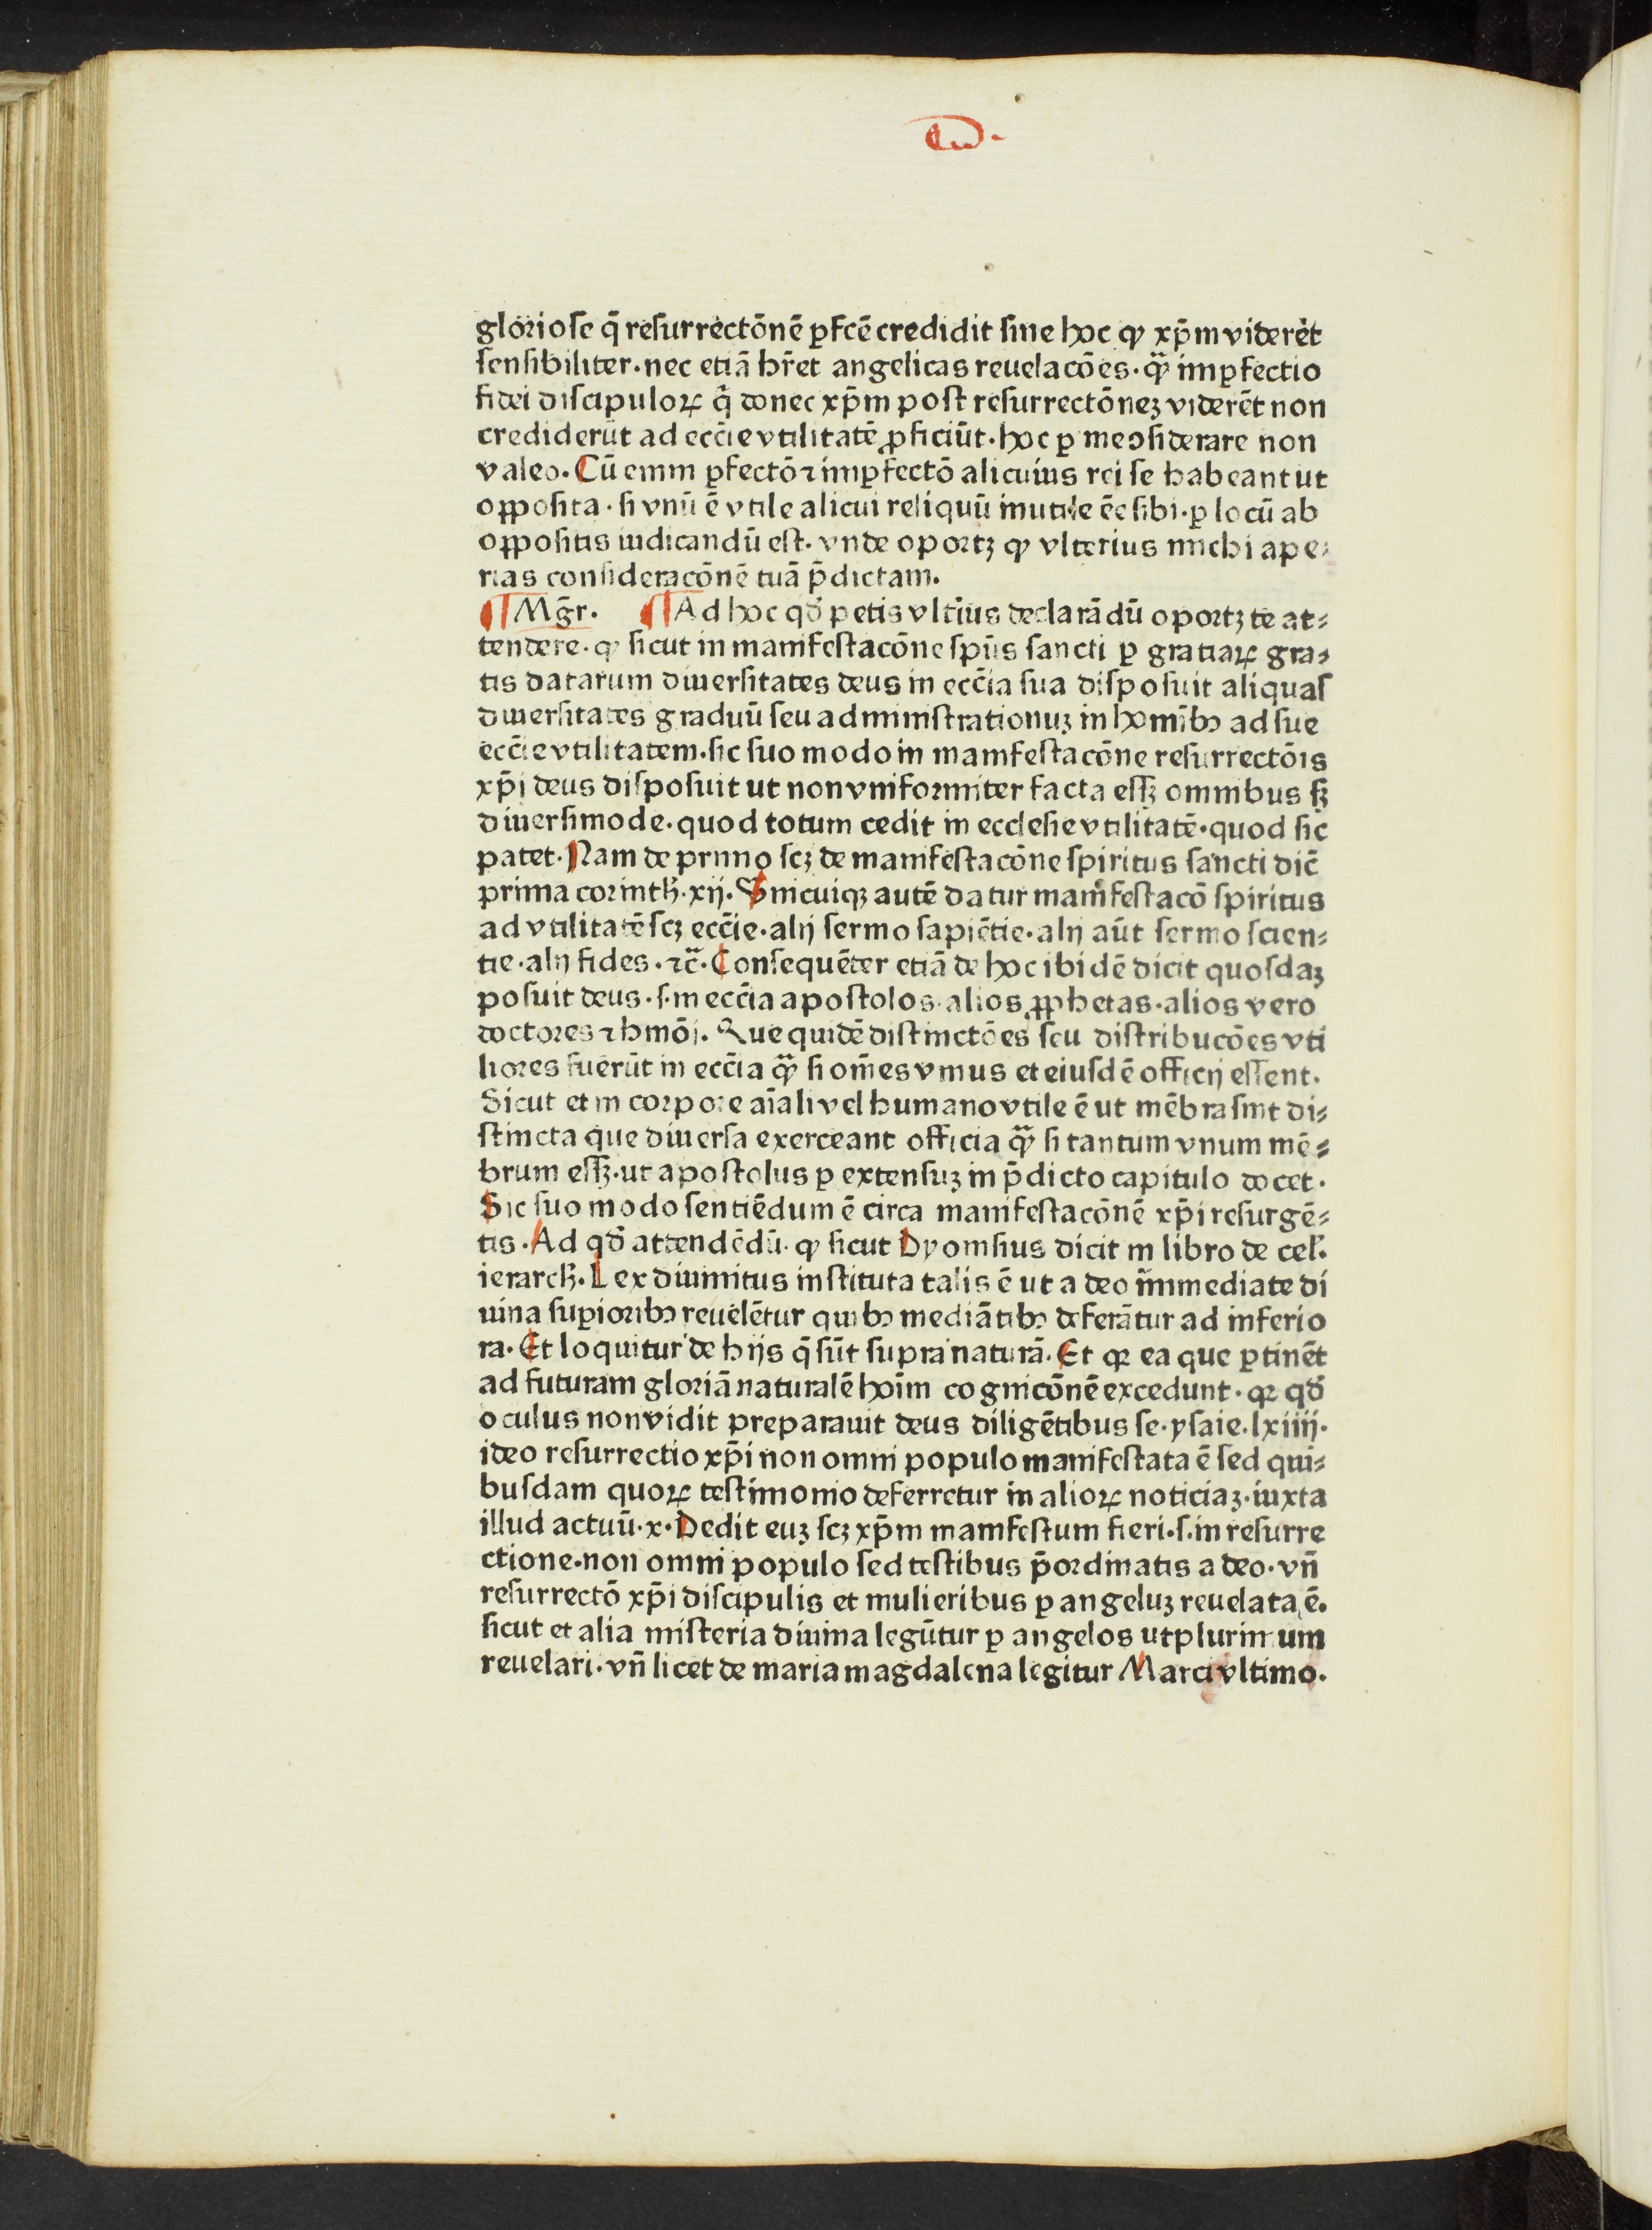 gloriose q̄ resurrectōnē ꝑfcē credidit sine hoc ꝙ xp̄m viderēt
sensibiliter·nec etiā hr̄et angelicas reuelacōes·qꝫ̄ imꝑfectio
fidei discipuloꝝ q̄ donec xp̄m post resurrectōneꝫ viderēt non
crediderūt ad ecc̄ie vtilitatē ꝓficiūt·hoc ꝑ me ꝯsiderare non
valeo. Cū enim ꝑfectō ⁊ imꝑfectō alicuius rei se habeant ut
opposita·si vnū ē vtile alicui reliquū inutile ēe sibi·ꝑ locū ab
oppositis iudicandū est·vnde oportꝫ ꝙ vlterius michi ape⸗
rias consideracōnē tuā p̄dictam.
¶ Mḡr. ¶ Ad hoc qd̄ petis vltīus declarādū oportꝫ te at⸗
tendere·ꝙ sicut in manifestacōne spūs sancti ꝑ gratiaꝝ gra⸗
tis datarum diuersitates deus in ecc̄ia sua disposuit aliquas
diuersitates graduū seu administrationuꝫ in homībꝰ ad sue
ecc̄ie vtilitatem·sic suo modo in manifestacōne resurrectōis
xp̄i deus disposuit ut non vniformiter facta essꝫ omnibus sꝫ
diuersimode·quod totum cedit in ecclesie vtilitatē·quod sic
patet·Nam de primo scꝫ de manifestacōne spiritus sancti dic̄
prima corinth̄·xij. Vnicuiqꝫ autē datur manifestacō spiritus
ad vtilitatē scꝫ ecc̄ie·alij sermo sapiētie·alij aūt sermo scien⸗
tie·alij fides·⁊c̄·Consequēter etiā de hoc ibidē dicit quosdaꝫ
posuit deus·s·in ecc̄ia apostolos·alios ꝓphetas·alios vero
doctores ⁊ hmōi. Que quidē distinctōes seu distribucōes vti
liores fuerūt in ecc̄ia qꝫ̄ si om̄es vnius et eiusdē officij essent.
Sicut et in corpore aīali vel humano vtile ē ut mēbra sint di⸗
stincta que diuersa exerceant officia qꝫ̄ si tantum vnum mē⸗
brum essꝫ·ut apostolus ꝑ extensuꝫ in p̄dicto capitulo docet·
Sic suo modo sentiēdum ē circa manifestacōnē xp̄i resurgē⸗
tis·Ad qd̄ attendēdū·ꝙ sicut Dyonisius dicit in libro de cel̄.
ierarch̄. Lex diuinitus instituta talis ē ut a deo immediate di
uina suꝑioribꝰ reuelētur quibꝰ mediātibꝰ deferātur ad inferio
ra·Et loquitur de hijs q̄ sūt supra naturā. Et qꝛ ea que ꝑtinēt
ad futuram gloriā naturalē hoīm cognicōnē excedunt·qꝛ qd̄
oculus non vidit preparauit deus diligētibus se·ysaie·lxiiij·
ideo resurrectio xp̄i non omni populo manifestata ē sed qui⸗
busdam quoꝝ testimonio deferretur in alioꝝ noticiaꝫ·iuxta
illud actuū·x·Dedit euꝫ scꝫ xp̄m manifestum fieri·s·in resurre
ctione·non omni populo sed testibus p̄ordinatis a deo·vn̄
resurrectō xp̄i discipulis et mulieribus ꝑ angeluꝫ reuelata ē.
sicut et alia misteria diuina legūtur ꝑ angelos utplurimum
reuelari·vn̄ licet de maria magdalena legitur Marci vltimo.